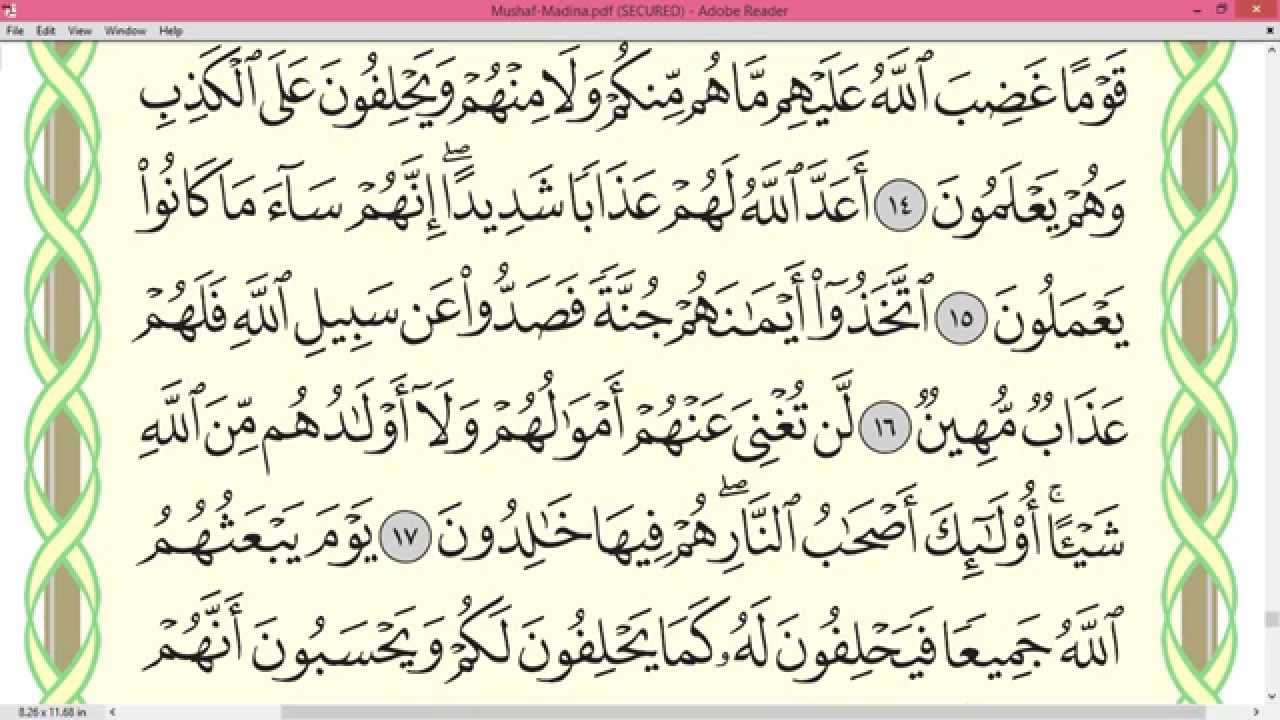 Mushaf-Madina.pdf (SECURED) - Adobe Reader
File Edit View Window Help
قَوْمًا غَضِبَ ٱللَّهُ عَلَيْهِم مَّا هُم مِّنكُمْ وَلَا مِنْهُمْ وَيَحْلِفُونَ عَلَى ٱلْكَذِبِ
وَهُمْ يَعْلَمُونَ ١٤ أَعَدَّ ٱللَّهُ لَهُمْ عَذَابًا شَدِيدًا ۖ إِنَّهُمْ سَآءَ مَا كَانُوا۟
يَعْمَلُونَ ١٥ ٱتَّخَذُوٓا۟ أَيْمَـٰنَهُمْ جُنَّةً فَصَدُّوا۟ عَن سَبِيلِ ٱللَّهِ فَلَهُمْ
عَذَابٌ مُّهِينٌ ١٦ لَّن تُغْنِىَ عَنْهُمْ أَمْوَٰلُهُمْ وَلَآ أَوْلَـٰدُهُم مِّنَ ٱللَّهِ
شَيْـًٔا ۚ أُو۟لَـٰٓئِكَ أَصْحَـٰبُ ٱلنَّارِ ۖ هُمْ فِيهَا خَـٰلِدُونَ ١٧ يَوْمَ يَبْعَثُهُمُ
ٱللَّهُ جَمِيعًا فَيَحْلِفُونَ لَهُۥ كَمَا يَحْلِفُونَ لَكُمْ وَيَحْسَبُونَ أَنَّهُمْ
8.26 x 11.68 in